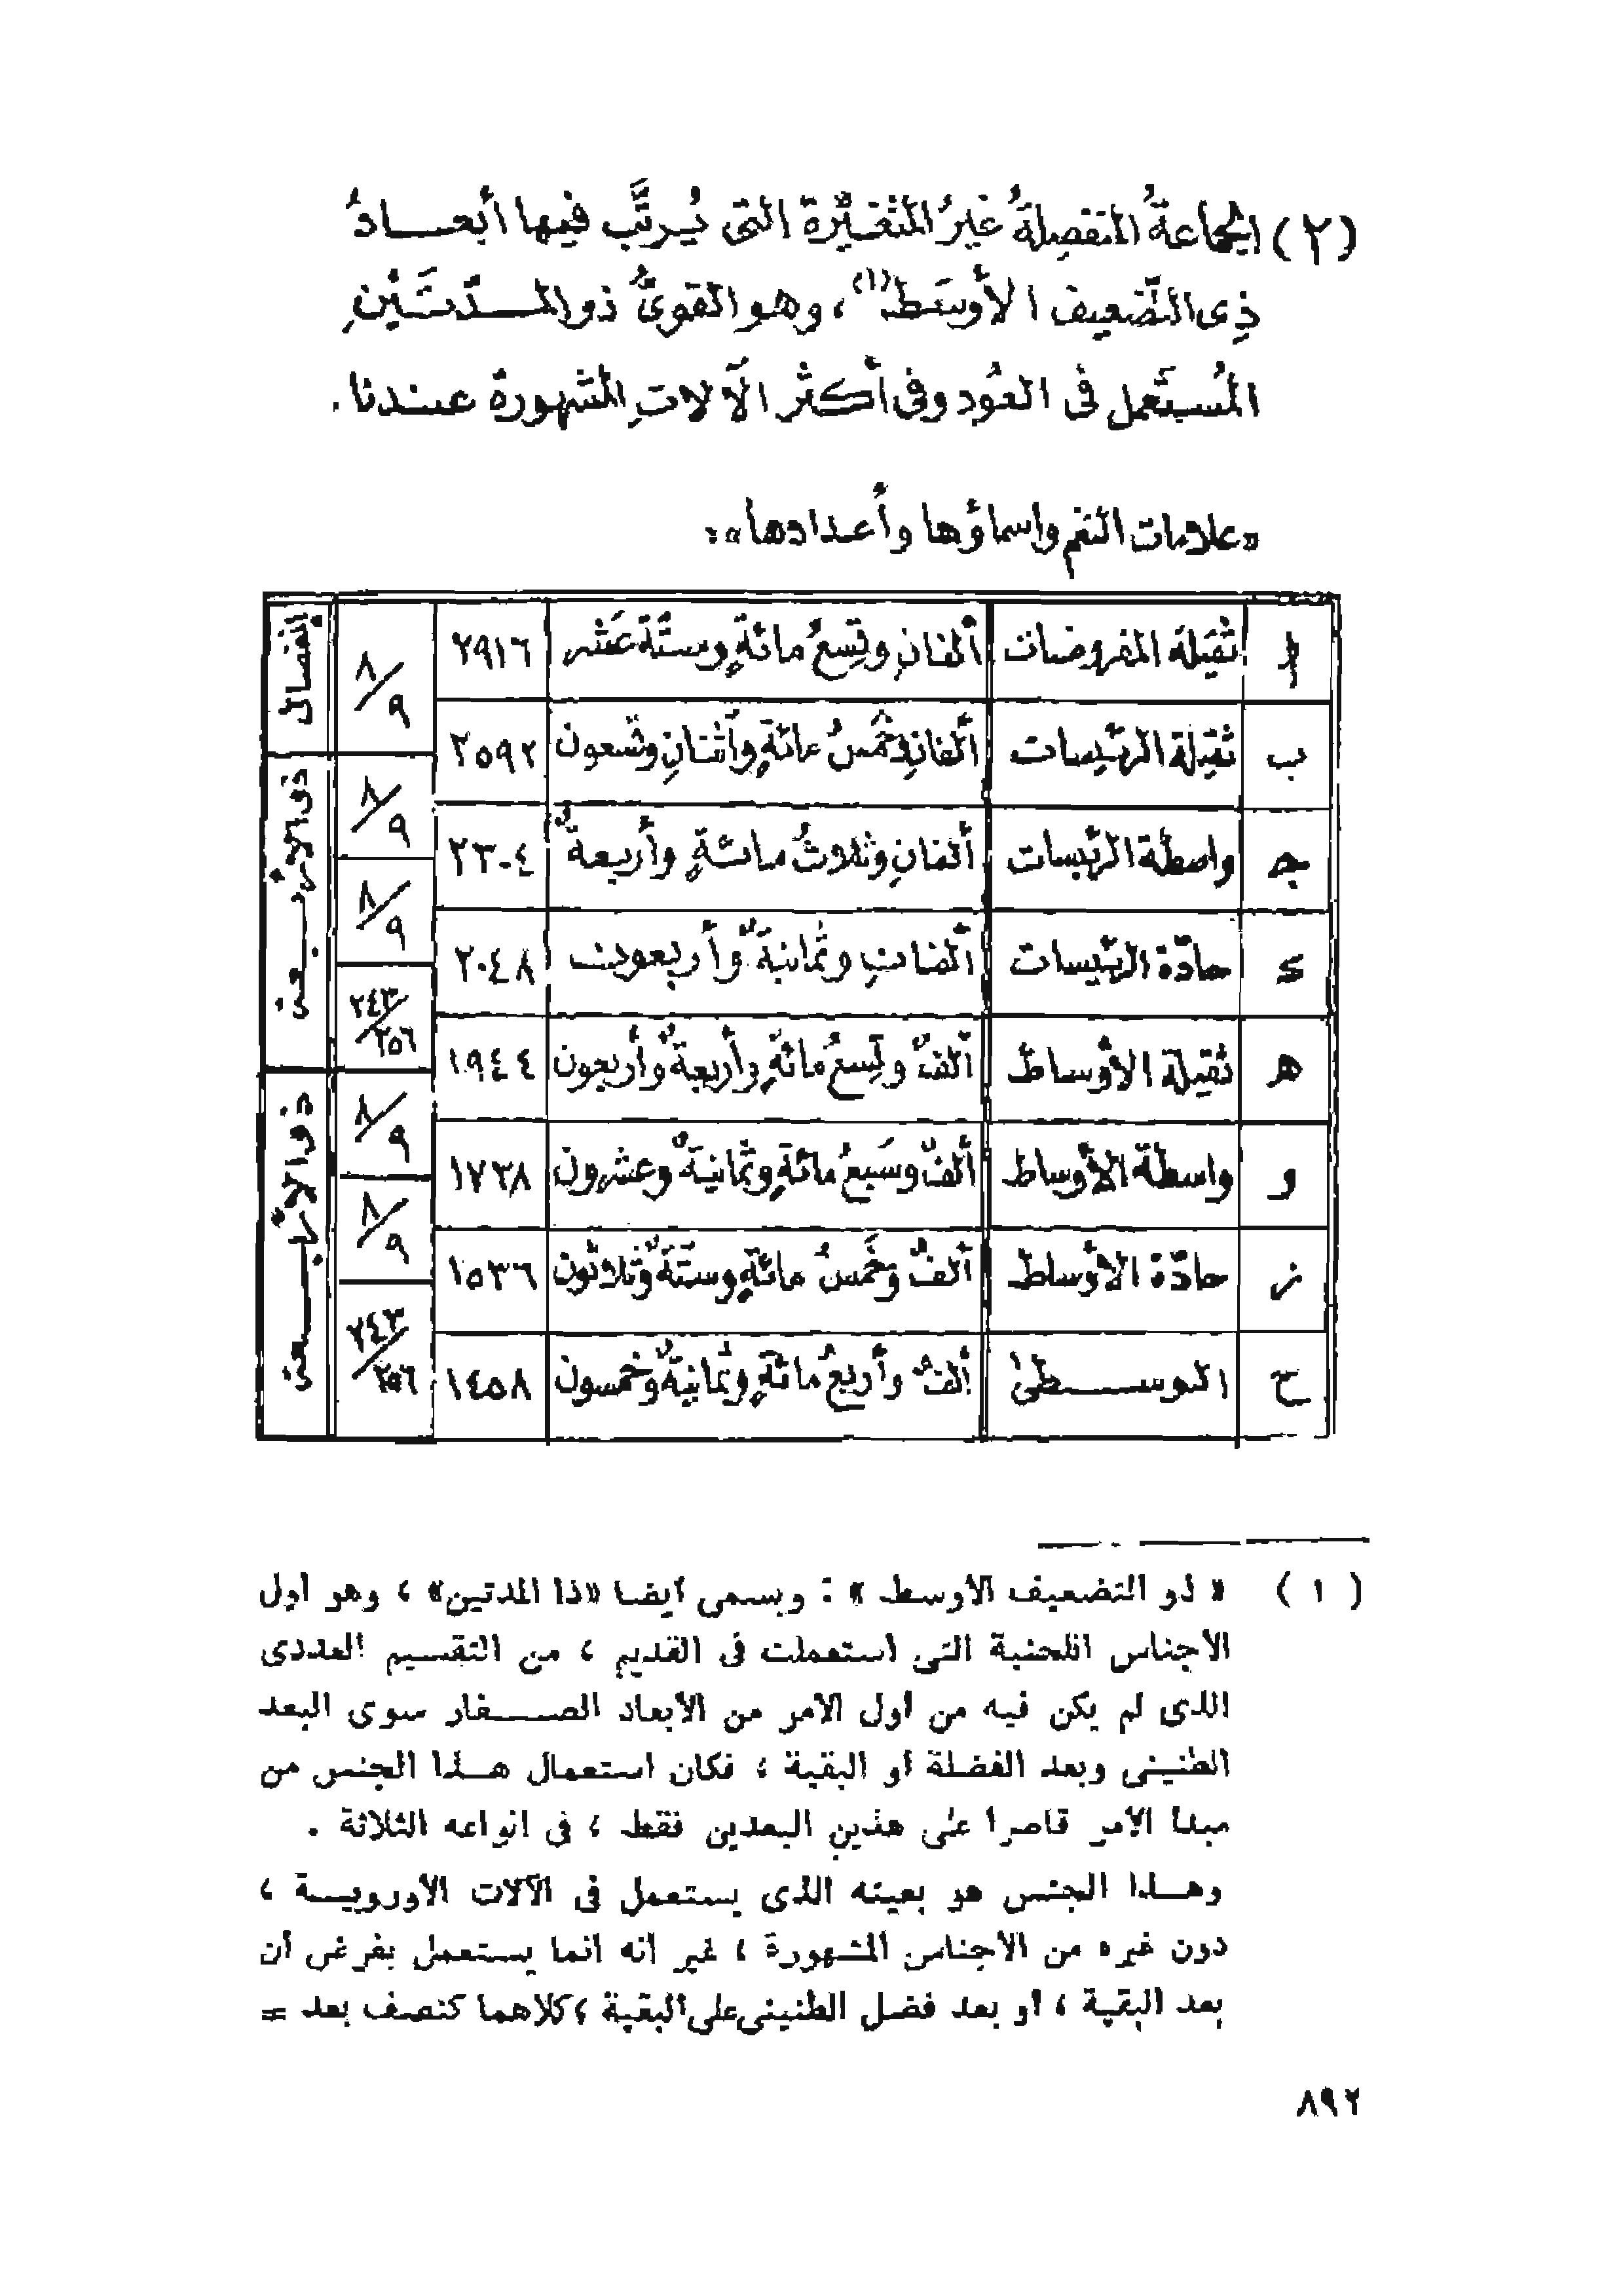 (٢) الجماعةُ المنفصِلةُ غيرُ المتغيِّرة التى يُرتَّب فيها أبعــادُ
ذِى التَّضعيف الأوسَط(١)، وهو القوىُّ ذو المــدّتَيْنِ
المُستَعمل فى العُود وفى أكثر الآلاتِ المشهورة عندنا.
«علامات النغم واسماؤها وأعدادها»:
ا ثقيلة المفروضات ألفانِ وتِسعُ مائةٍ وستّة عَشر ٢٩١٦ ٨/٩ انفصالى
ب ثقيلة الرئيسات ألفانِ وخَمسُ مائةٍ وآثنانِ وتسعون ٢٥٩٢ ٨/٩ ذى الأربــعة
جـ واسطة الرئيسات ألفانِ وثلاثُ مائــةٍ وأربعةٌ ٢٣٠٤ ٨/٩
د حادّة الرئيسات ألفانِ وثمانيةٌ وأربعون ٢٠٤٨ ٢٤٣/٢٥٦
هـ ثقيلة الأوساط ألفٌ وتِسعُ مائةٍ وأربعةٌ وأربعون ١٩٤٤ ٨/٩ ذو الأربــعة
و واسطة الأوساط ألفٌ وسَبعُ مائةٍ وثمانيةٌ وعشرون ١٧٢٨ ٨/٩
ز حادّة الأوساط ألفٌ وخَمسُ مائةٍ وستّةٌ وثلاثون ١٥٣٦ ٢٤٣/٢٥٦
ح الوســطىٰ ألفٌ وأربعُ مائةٍ وثمانيةٌ وخمسون ١٤٥٨
(١) « ذو التضعيف الأوسط » : ويسمى أيضا «ذا المدتين» ، وهو أول
الأجناس اللحنية التى استعملت فى القديم ، من التقسيم العددى
الذى لم يكن فيه من أول الأمر من الأبعاد الصــغار سوى البعد
الطنينى وبعد الفضلة أو البقية ، فكان استعمال هــذا الجنس من
مبدا الأمر قاصرا على هذين البعدين فقط ، فى انواعه الثلاثة .
وهــذا الجنس هو بعينه الذى يستعمل فى الآلات الأوروبيــة ،
دون غيره من الأجناس المشهورة ، غير انه انما يستعمل بفرض أن
بعد البقية ، أو بعد فضل الطنينى على البقية ، كلاهما كنصف بعد =
٨٩٢